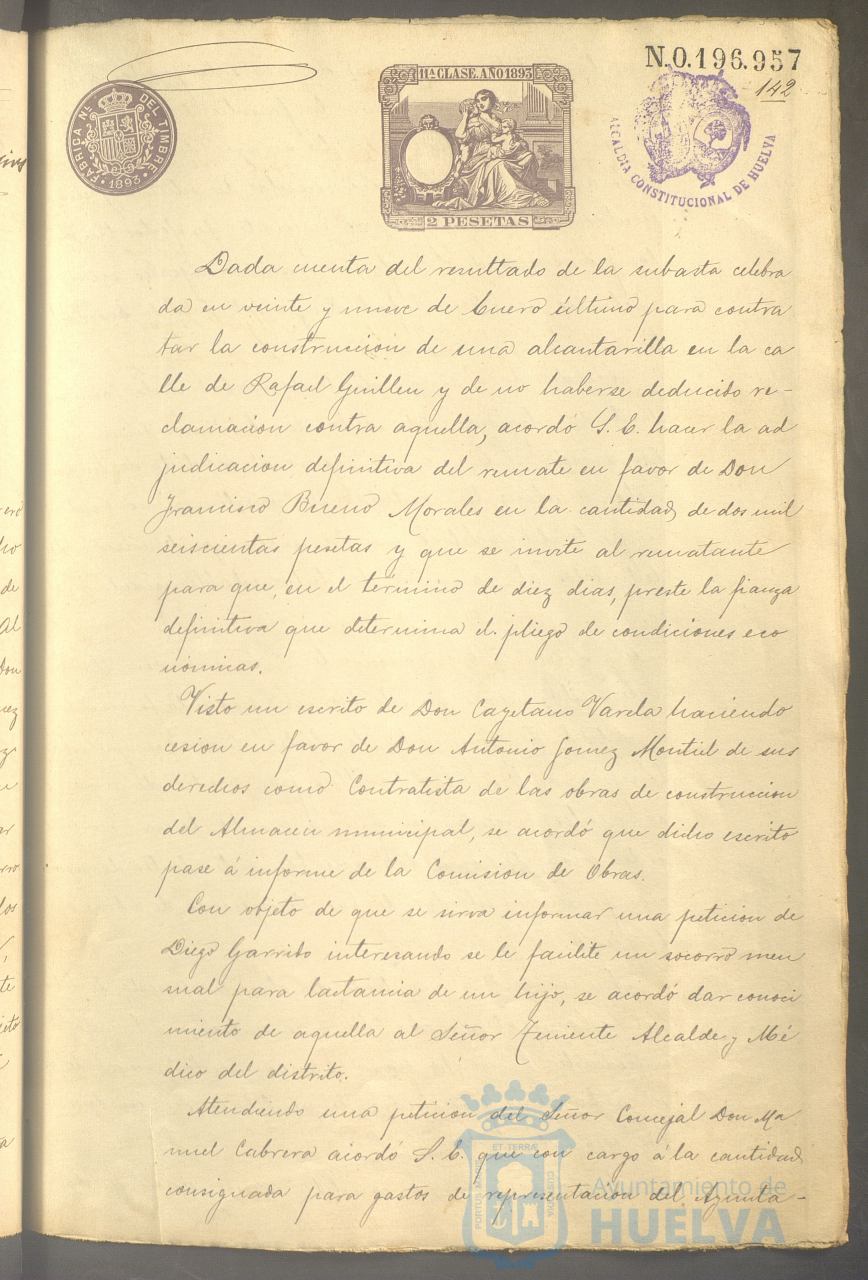 N.0.196.957
142
11ª CLASE. AÑO 1893
2 PESETAS
FABRICA NL. DEL TIMBRE
1893
ALCALDIA CONSTITUCIONAL DE HUELVA
Dada cuenta del resultado de la subasta celebra
da en veinte y nueve de Enero último para contra
tar la construccion de una alcantarilla en la ca
lle de Rafael Guillen y de no haberse deducido re-
clamacion contra aquella, acordó S. E. hacer la ad
judicacion definitiva del remate en favor de Don
Francisco Bueno Morales en la cantidad de dos mil
seiscientas pesetas y que se invite al rematante
para que, en el término de diez dias, preste la fianza
definitiva que determina el pliego de condiciones eco
nómicas.
Visto un escrito de Don Cayetano Varela haciendo
cesion en favor de Don Antonio Gomez Montiel de sus
derechos como Contratista de las obras de construccion
del Almacen municipal, se acordó que dicho escrito
pase á informe de la Comision de Obras.
Con objeto de que se sirva informar una peticion de
Diego Garrido interesando se le facilite un socorro men
sual para lactancia de un hijo, se acordó dar conoci
miento de aquella al Señor Teniente Alcalde y Mé
dico del distrito.
Atendiendo una peticion del Señor Concejal Don Ma
nuel Cabrera acordó S. E. que con cargo á la cantidad
consignada para gastos de representacion del Ayunta-
PORTUS MARIS ET TERRAE CUSTODIA
Ayuntamiento de
HUELVA